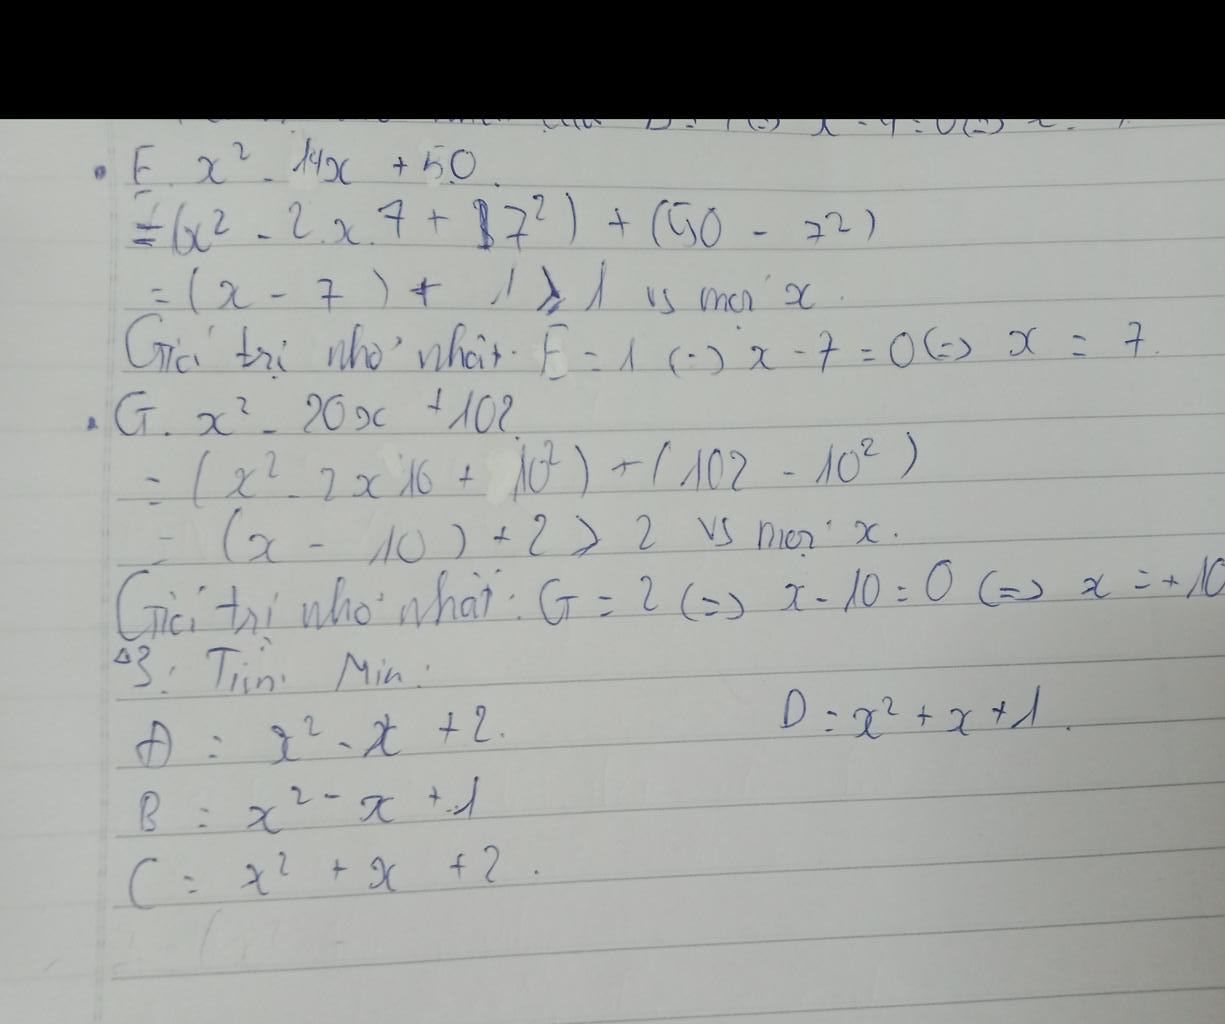 E. x² - 14x + 50.
= (x² - 2.x.7 + 7²) + (50 - 7²)
= (x - 7) + 1 ⩾ 1 vs mọi x.
Giá trị nhỏ nhất. E = 1 (=) x - 7 = 0 (=) x = 7.
G. x² - 20x + 102.
= (x² - 2x10 + 10²) + (102 - 10²)
= (x - 10) + 2 ⩾ 2 vs mọi x.
Giá trị nhỏ nhất: G = 2 (=) x - 10 = 0 (=) x = +10
3: Tìm Min:
A = x² - x + 2. D = x² + x + 1.
B = x² - x + 1
C = x² + x + 2.